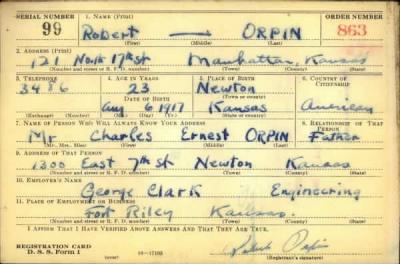 SERIAL NUMBER 1. NAME (Print) ORDER NUMBER
99 Robert — ORPIN 863
(First) (Middle) (Last)
2. ADDRESS (Print)
121 North 17th St Manhattan, Kansas
(Number and street or R. F. D. number) (Town) (County) (State)
3. TELEPHONE 4. AGE IN YEARS 5. PLACE OF BIRTH 6. COUNTRY OF CITIZENSHIP
3486 23 Newton
(Town or county)
DATE OF BIRTH
Aug 6 1917 Kansas American
(Exchange) (Number) (Mo.) (Day) (Yr.) (State or country)
7. NAME OF PERSON WHO WILL ALWAYS KNOW YOUR ADDRESS 8. RELATIONSHIP OF THAT PERSON
Mr Charles Ernest ORPIN Father
(Mr., Mrs., Miss) (First) (Middle) (Last)
9. ADDRESS OF THAT PERSON
1300 East 7th St Newton Kansas
(Number and street or R. F. D. number) (Town) (County) (State)
10. EMPLOYER'S NAME
George Clark Engineering
11. PLACE OF EMPLOYMENT OR BUSINESS
Fort Riley Kansas.
(Number and street or R. F. D. number) (Town) (County) (State)
I AFFIRM THAT I HAVE VERIFIED ABOVE ANSWERS AND THAT THEY ARE TRUE.
REGISTRATION CARD
D. S. S. Form 1
(over) 16-17105
(Registrant's signature)